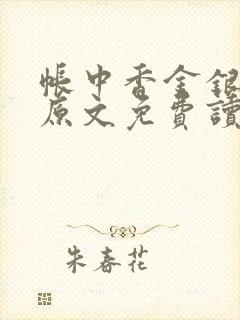 帳中香金銀
原文免費讀
朱春花